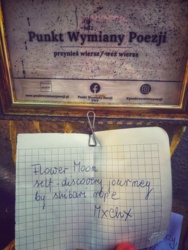 Punkt Wymiany Poezji
przynieś wiersz / weź wiersz
Flower Moon
self-discovery journey
by shibari rope
MxCbx